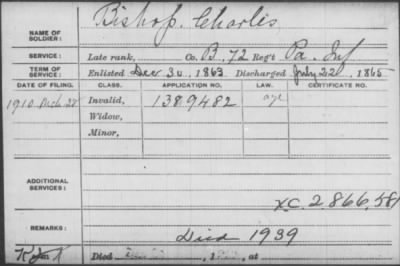 NAME OF SOLDIER: Bishop, Charles
SERVICE: Late rank, Co. B. 72 Reg't Pa. Inf
TERM OF SERVICE: Enlisted Dec 30, 1863 Discharged July 22, 1865
DATE OF FILING. CLASS. APPLICATION NO. LAW. CERTIFICATE NO.
1910 Mch 28 Invalid, 1389482 age
Widow,
Minor,
ADDITIONAL SERVICES:
XC. 2,866,581
REMARKS: Died 1939
Died , 1 , at